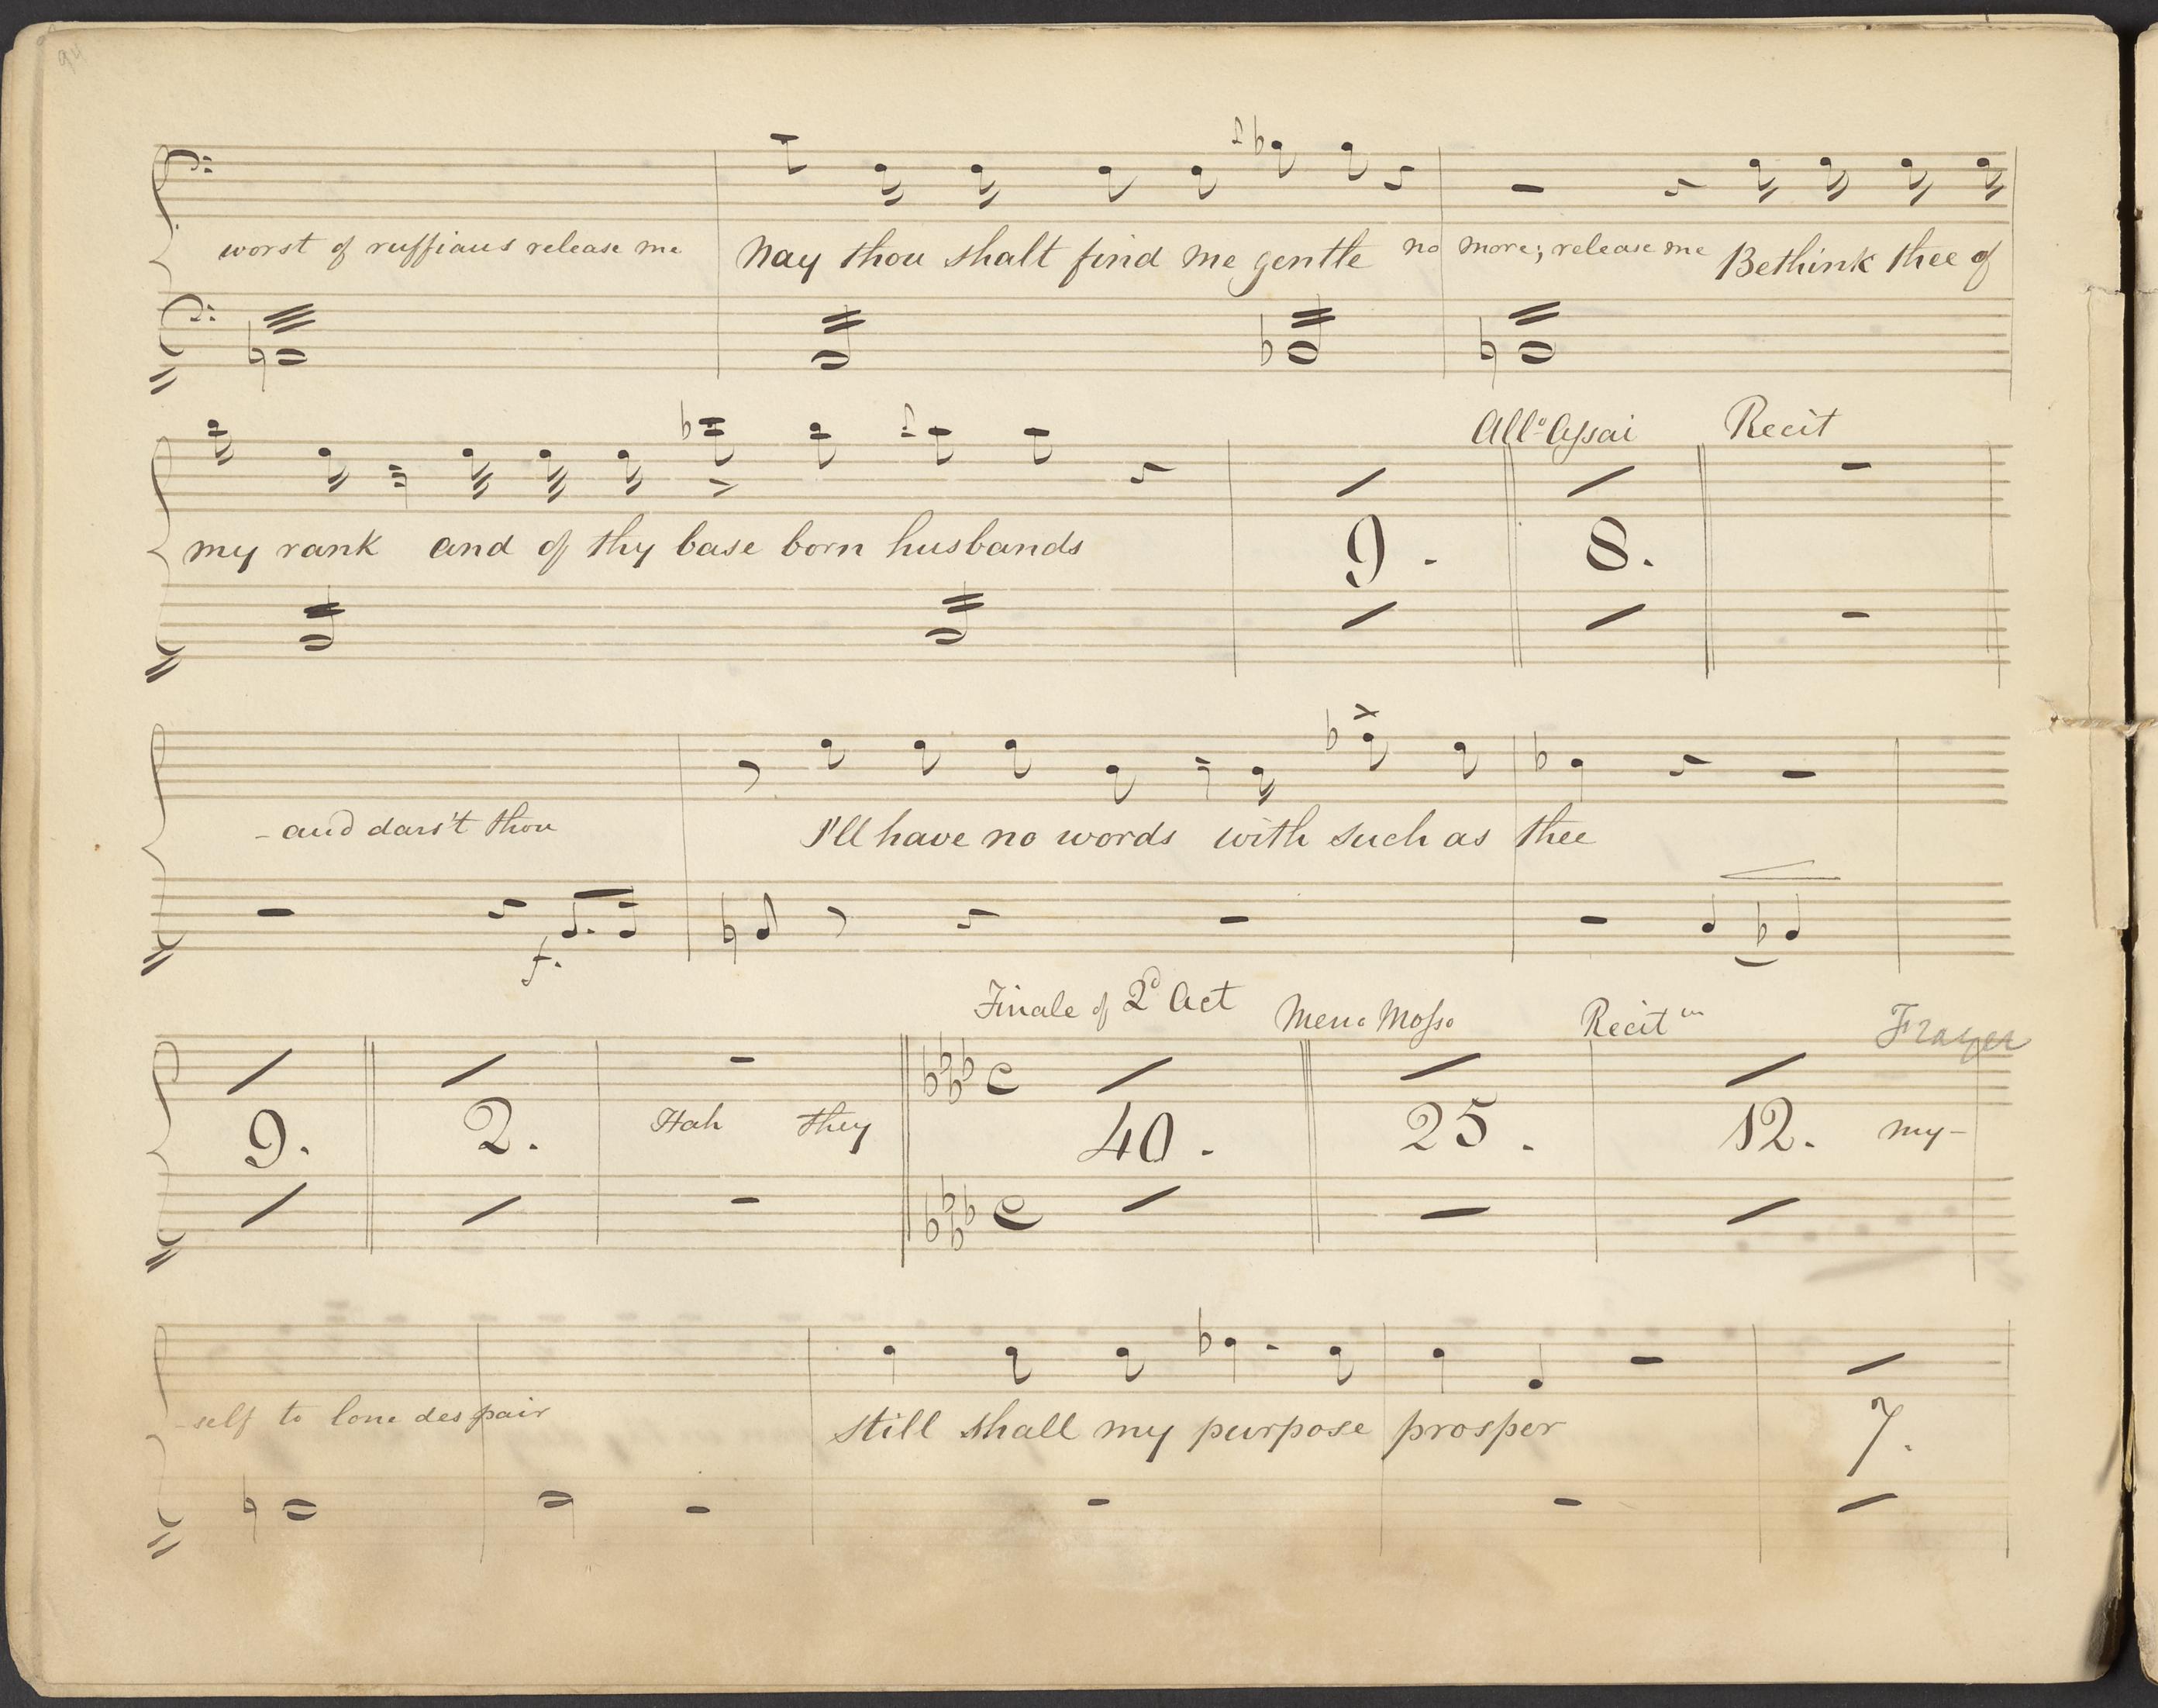 94
worst of ruffians release me Nay thou shalt find me gentle no more; release me Bethink thee of
Allo Assai Recit
my rank and of thy base born husbands 9. 8.
- and dars't thou I'll have no words with such as thee
f.
Finale of 2d Act Meno Mosso Recit
9. 2. Hah they 40. 25. 12. my-
-self to lone despair still shall my purpose prosper 7.